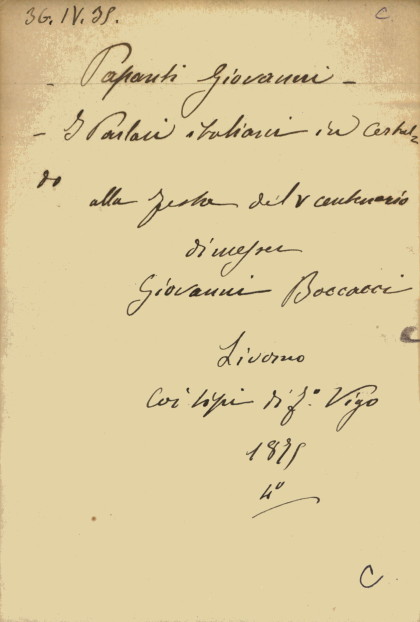 36. IV. 35. C
- Papanti Giovanni -
- I Parlari italiani in Certal=
do
alla festa del V centenario
di messer
Giovanni Boccacci
Livorno
Coi tipi di F.º Vigo
1875
4º
C